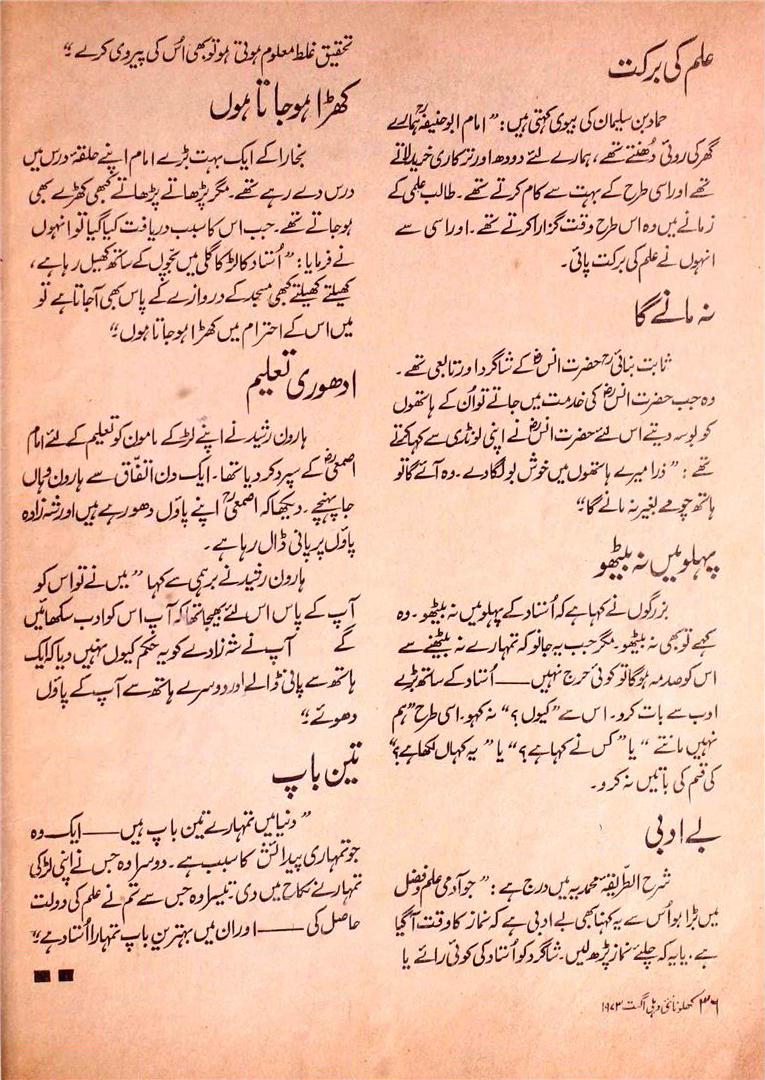 علم کی برکت
حماد بن سلیمان کی بیوی کہتی ہیں: ”امام ابو حنیفہؒ ہمارے
گھر کی روئی دُھنتے تھے، ہمارے لئے دودھ اور ترکاری خرید لاتے
تھے اور اسی طرح کے بہت سے کام کرتے تھے۔ طالب علمی کے
زمانے میں وہ اس طرح وقت گزارا کرتے تھے۔ اور اسی سے
انہوں نے علم کی برکت پائی۔
نہ مانے گا
ثابت بنائیؒ حضرت انسؓ کے شاگرد اور تابعی تھے۔
وہ جب حضرت انسؓ کی خدمت میں جاتے تو اُن کے ہاتھوں
کو بوسہ دیتے اس لئے حضرت انسؓ نے اپنی لونڈی سے کہا کرتے
تھے: ”ذرا میرے ہاتھوں میں خوش بو لگا دے۔ وہ آئے گا تو
ہاتھ چومے بغیر نہ مانے گا“
پہلو میں نہ بیٹھو
بزرگوں نے کہا ہے کہ اُستاد کے پہلو میں نہ بیٹھو۔ وہ
کہے تو بھی نہ بیٹھو۔ مگر جب یہ جانو کہ تمہارے نہ بیٹھنے سے
اس کو صدمہ ہوگا تو کوئی حرج نہیں —— اُستاد کے ساتھ بڑے
ادب سے بات کرو۔ اس سے ”کیوں؟“ نہ کہو۔ اسی طرح ”ہم
نہیں مانتے“ یا ”کس نے کہا ہے؟“ یا ”یہ کہاں لکھا ہے؟“
کی قسم کی باتیں نہ کرو۔
بے ادبی
شرح الطّریقہ محمدیہ میں درج ہے: ”جو آدمی علم و فضل
میں بڑا ہو اُس سے یہ کہنا بھی بے ادبی ہے کہ نماز کا وقت آگیا
ہے۔ یا یہ کہ چلئے نماز پڑھ لیں۔ شاگرد کو اُستاد کی کوئی رائے یا
تحقیق غلط معلوم ہوتی ہو تو بھی اُس کی پیروی کرے“
کھڑا ہو جاتا ہوں
بخارا کے ایک بہت بڑے امام اپنے حلقۂ درس میں
درس دے رہے تھے۔ مگر پڑھاتے پڑھاتے کبھی کھڑے بھی
ہو جاتے تھے۔ جب اس کا سبب دریافت کیا گیا تو انہوں
نے فرمایا: ”اُستاد کا لڑکا گلی میں بچّوں کے ساتھ کھیل رہا ہے،
کھیلتے کھیلتے کبھی مسجد کے دروازے کے پاس بھی آجاتا ہے تو
میں اس کے احترام میں کھڑا ہو جاتا ہوں“
ادھوری تعلیم
ہارون رشید نے اپنے لڑکے مامون کو تعلیم کے لئے امام
اصمعیؒ کے سپرد کر دیا تھا۔ ایک دن اتفّاق سے ہارون وہاں
جا پہنچے۔ دیکھا کہ اصمعیؒ اپنے پاوٴں دھو رہے ہیں اور شہ زادہ
پاوٴں پر پانی ڈال رہا ہے۔
ہارون رشید نے برہمی سے کہا ”میں نے تو اس کو
آپ کے پاس اس لئے بھیجا تھا کہ آپ اس کو ادب سکھائیں
گے آپ نے شہ زادے کو یہ حکم کیوں نہیں دیا کہ ایک
ہاتھ سے پانی ڈالے اور دوسرے ہاتھ سے آپ کے پاوٴں
دھوئے“
تین باپ
”دنیا میں تمہارے تین باپ ہیں —— ایک وہ
جو تمہاری پیدائش کا سبب ہے۔ دوسرا وہ جس نے اپنی لڑکی
تمہارے نکاح میں دی۔ تیسرا وہ جس سے تم نے علم کی دولت
حاصل کی —— اور ان میں بہترین باپ تمہارا اُستاد ہے“
۳۶ کھلونا نئی دہلی اگست ۱۹۷۳